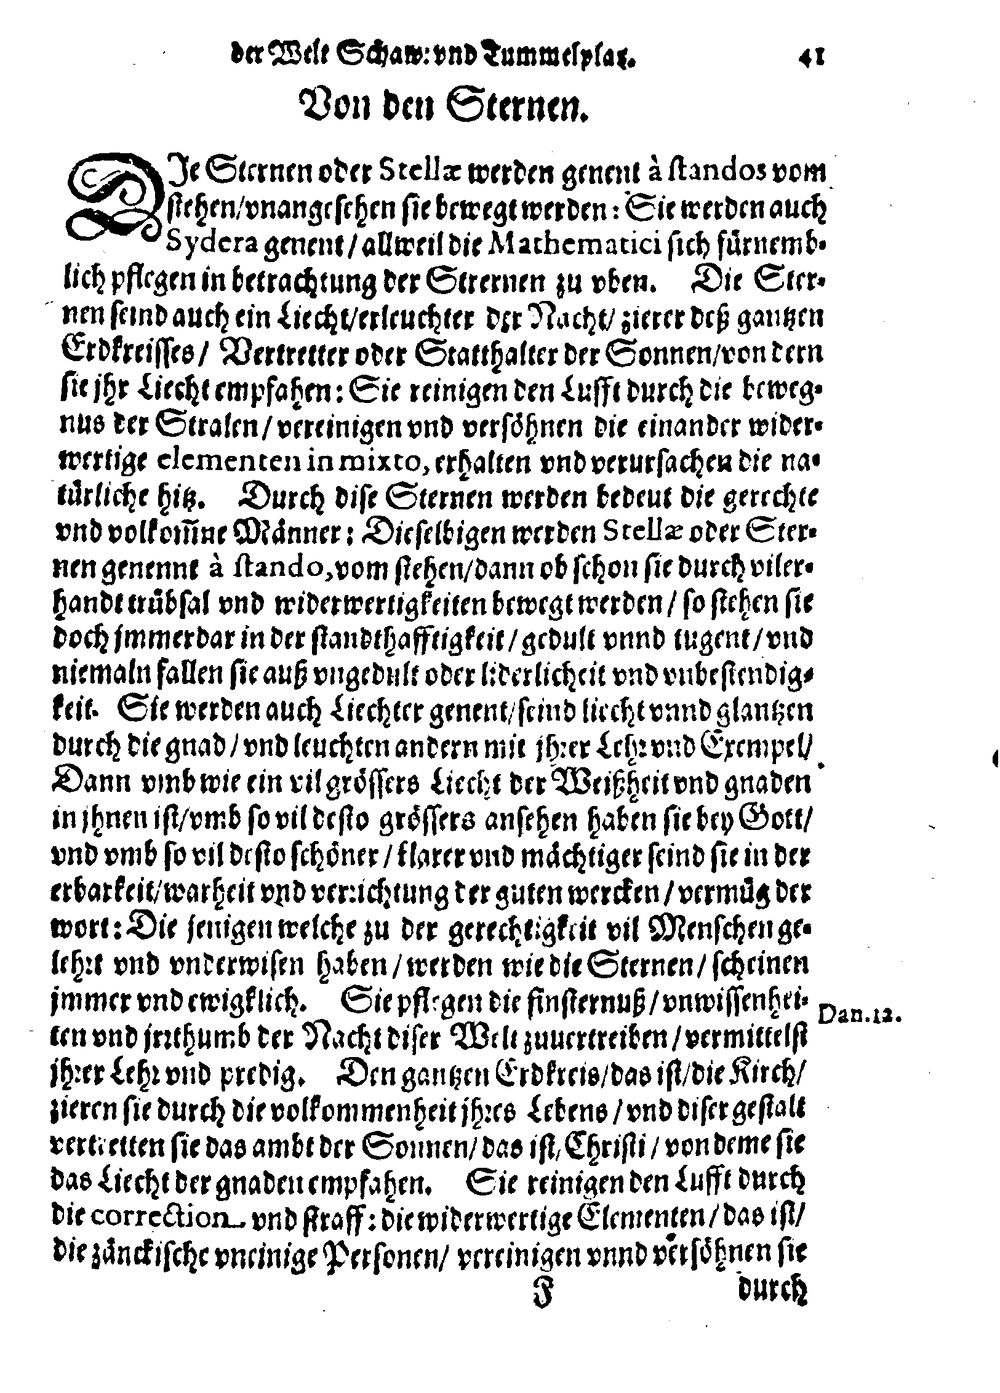 der Welt Schaw: vnd Tummelplatz. 41
Von den Sternen.
DIe Sternen oder Stellæ werden genent à standos vom
stehen/vnangesehen sie bewegt werden: Sie werden auch
Sydera genent/ allweil die Mathematici sich fürnemb-
lich pflegen in betrachtung der Strernen zu vben. Die Ster-
nen seind auch ein Liecht/erleuchter der Nacht/ zierer deß gantzen
Erdkreisses/ Vertretter oder Statthalter der Sonnen/von dern
sie jhr Liecht empfahen: Sie reinigen den Lufft durch die beweg-
nus der Stralen/ vereinigen vnd versöhnen die einander wider-
wertige elementen in mixto, erhalten vnd verursachen die na-
türliche hitz. Durch dise Sternen werden bedeut die gerechte
vnd volkom̄ne Männer: Dieselbigen werden Stellæ oder Ster-
nen genennt à stando, vom stehen/dann ob schon sie durch viler-
handt trübsal vnd widerwertigkeiten bewegt werden/ so stehen sie
doch jmmerdar in der standthafftigkeit/ gedult vnnd tugent/ vnd
niemaln fallen sie auß vngedult oder liderlicheit vnd vnbestendig-
keit. Sie werden auch Liechter genent/seind liecht vnnd glantzen
durch die gnad/ vnd leuchten andern mit jhrer Lehr vnd Exempel/
Dann vmb wie ein vil grössers Liecht der Weißheit vnd gnaden
in jhnen ist/vmb so vil desto grössers ansehen haben sie bey Gott/
vnd vmb so vil desto schöner/ klarer vnd mächtiger seind sie in der
erbarkeit/warheit vnd verrichtung der guten wercken/ vermüg der
wort: Die jenigen welche zu der gerechtigkeit vil Menschen ge-
lehrt vnd vnderwisen haben/ werden wie die Sternen/ scheinen
jmmer vnd ewigklich. Sie pflegen die finsternuß/ vnwissenhei-
Dan. 12.
ten vnd jrrthumb der Nacht diser Welt zuuertreiben/ vermittelst
jhrer Lehr vnd predig. Den gantzen Erdkreis/das ist/die Kirch/
zieren sie durch die volkommenheit jhres Lebens/ vnd diser gestalt
vertretten sie das ambt der Sonnen/ das ist/ Christi/ von deme sie
das Liecht der gnaden empfahen. Sie reinigen den Lufft durch
die correction vnd straff: die widerwertige Elementen/ das ist/
die zänckische vneinige Personen/ vereinigen vnnd versöhnen sie
F durch